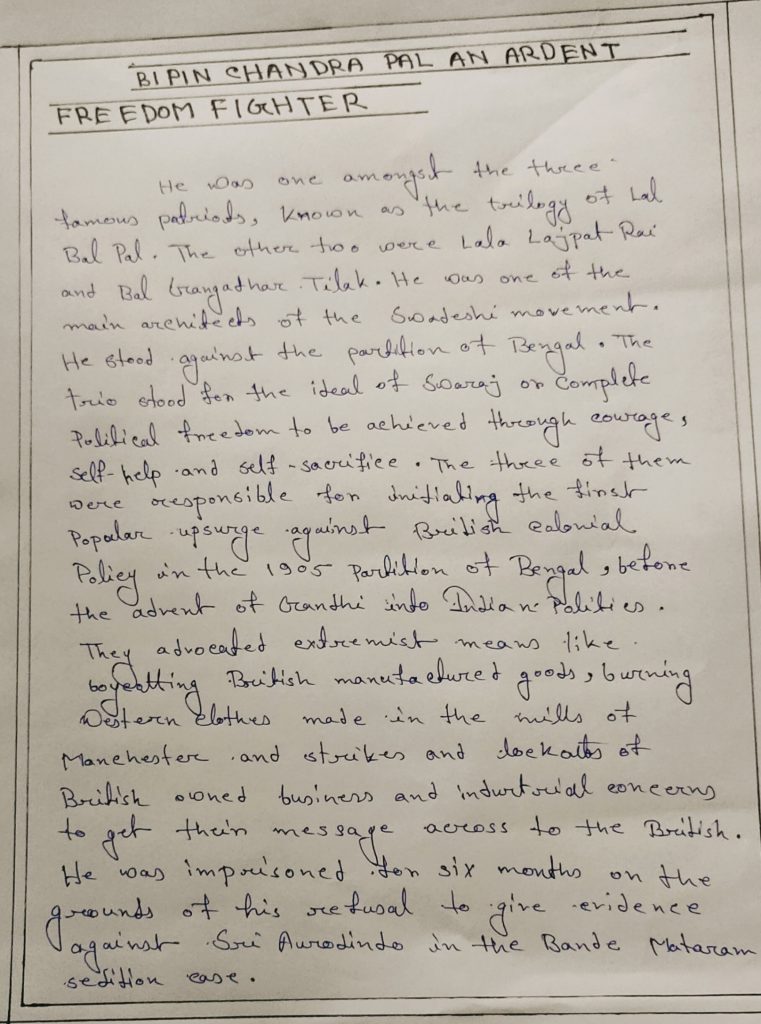 BIPIN CHANDRA PAL AN ARDENT
FREEDOM FIGHTER
He was one amongst the three
famous patriots, known as the trilogy of Lal
Bal Pal. The other two were Lala Lajpat Rai
and Bal Gangadhar Tilak. He was one of the
main architects of the Swadeshi movement.
He stood against the partition of Bengal. The
trio stood for the ideal of Swaraj or Complete
Political freedom to be achieved through courage,
self-help and self-sacrifice. The three of them
were responsible for initialing the first
Popular upsurge against British colonial
Policy in the 1905 Partition of Bengal, before
the advent of Gandhi into Indian Politics.
They advocated extremist means like
boycotting British manufactured goods, burning
Western clothes made in the mills of
Manchester and strikes and lockouts of
British owned business and indurtrial concerns
to get their message across to the British.
He was imprisoned for six months on the
grounds of his refusal to give evidence
against Sri Aurodindo in the Bande Mataram
sedition case.